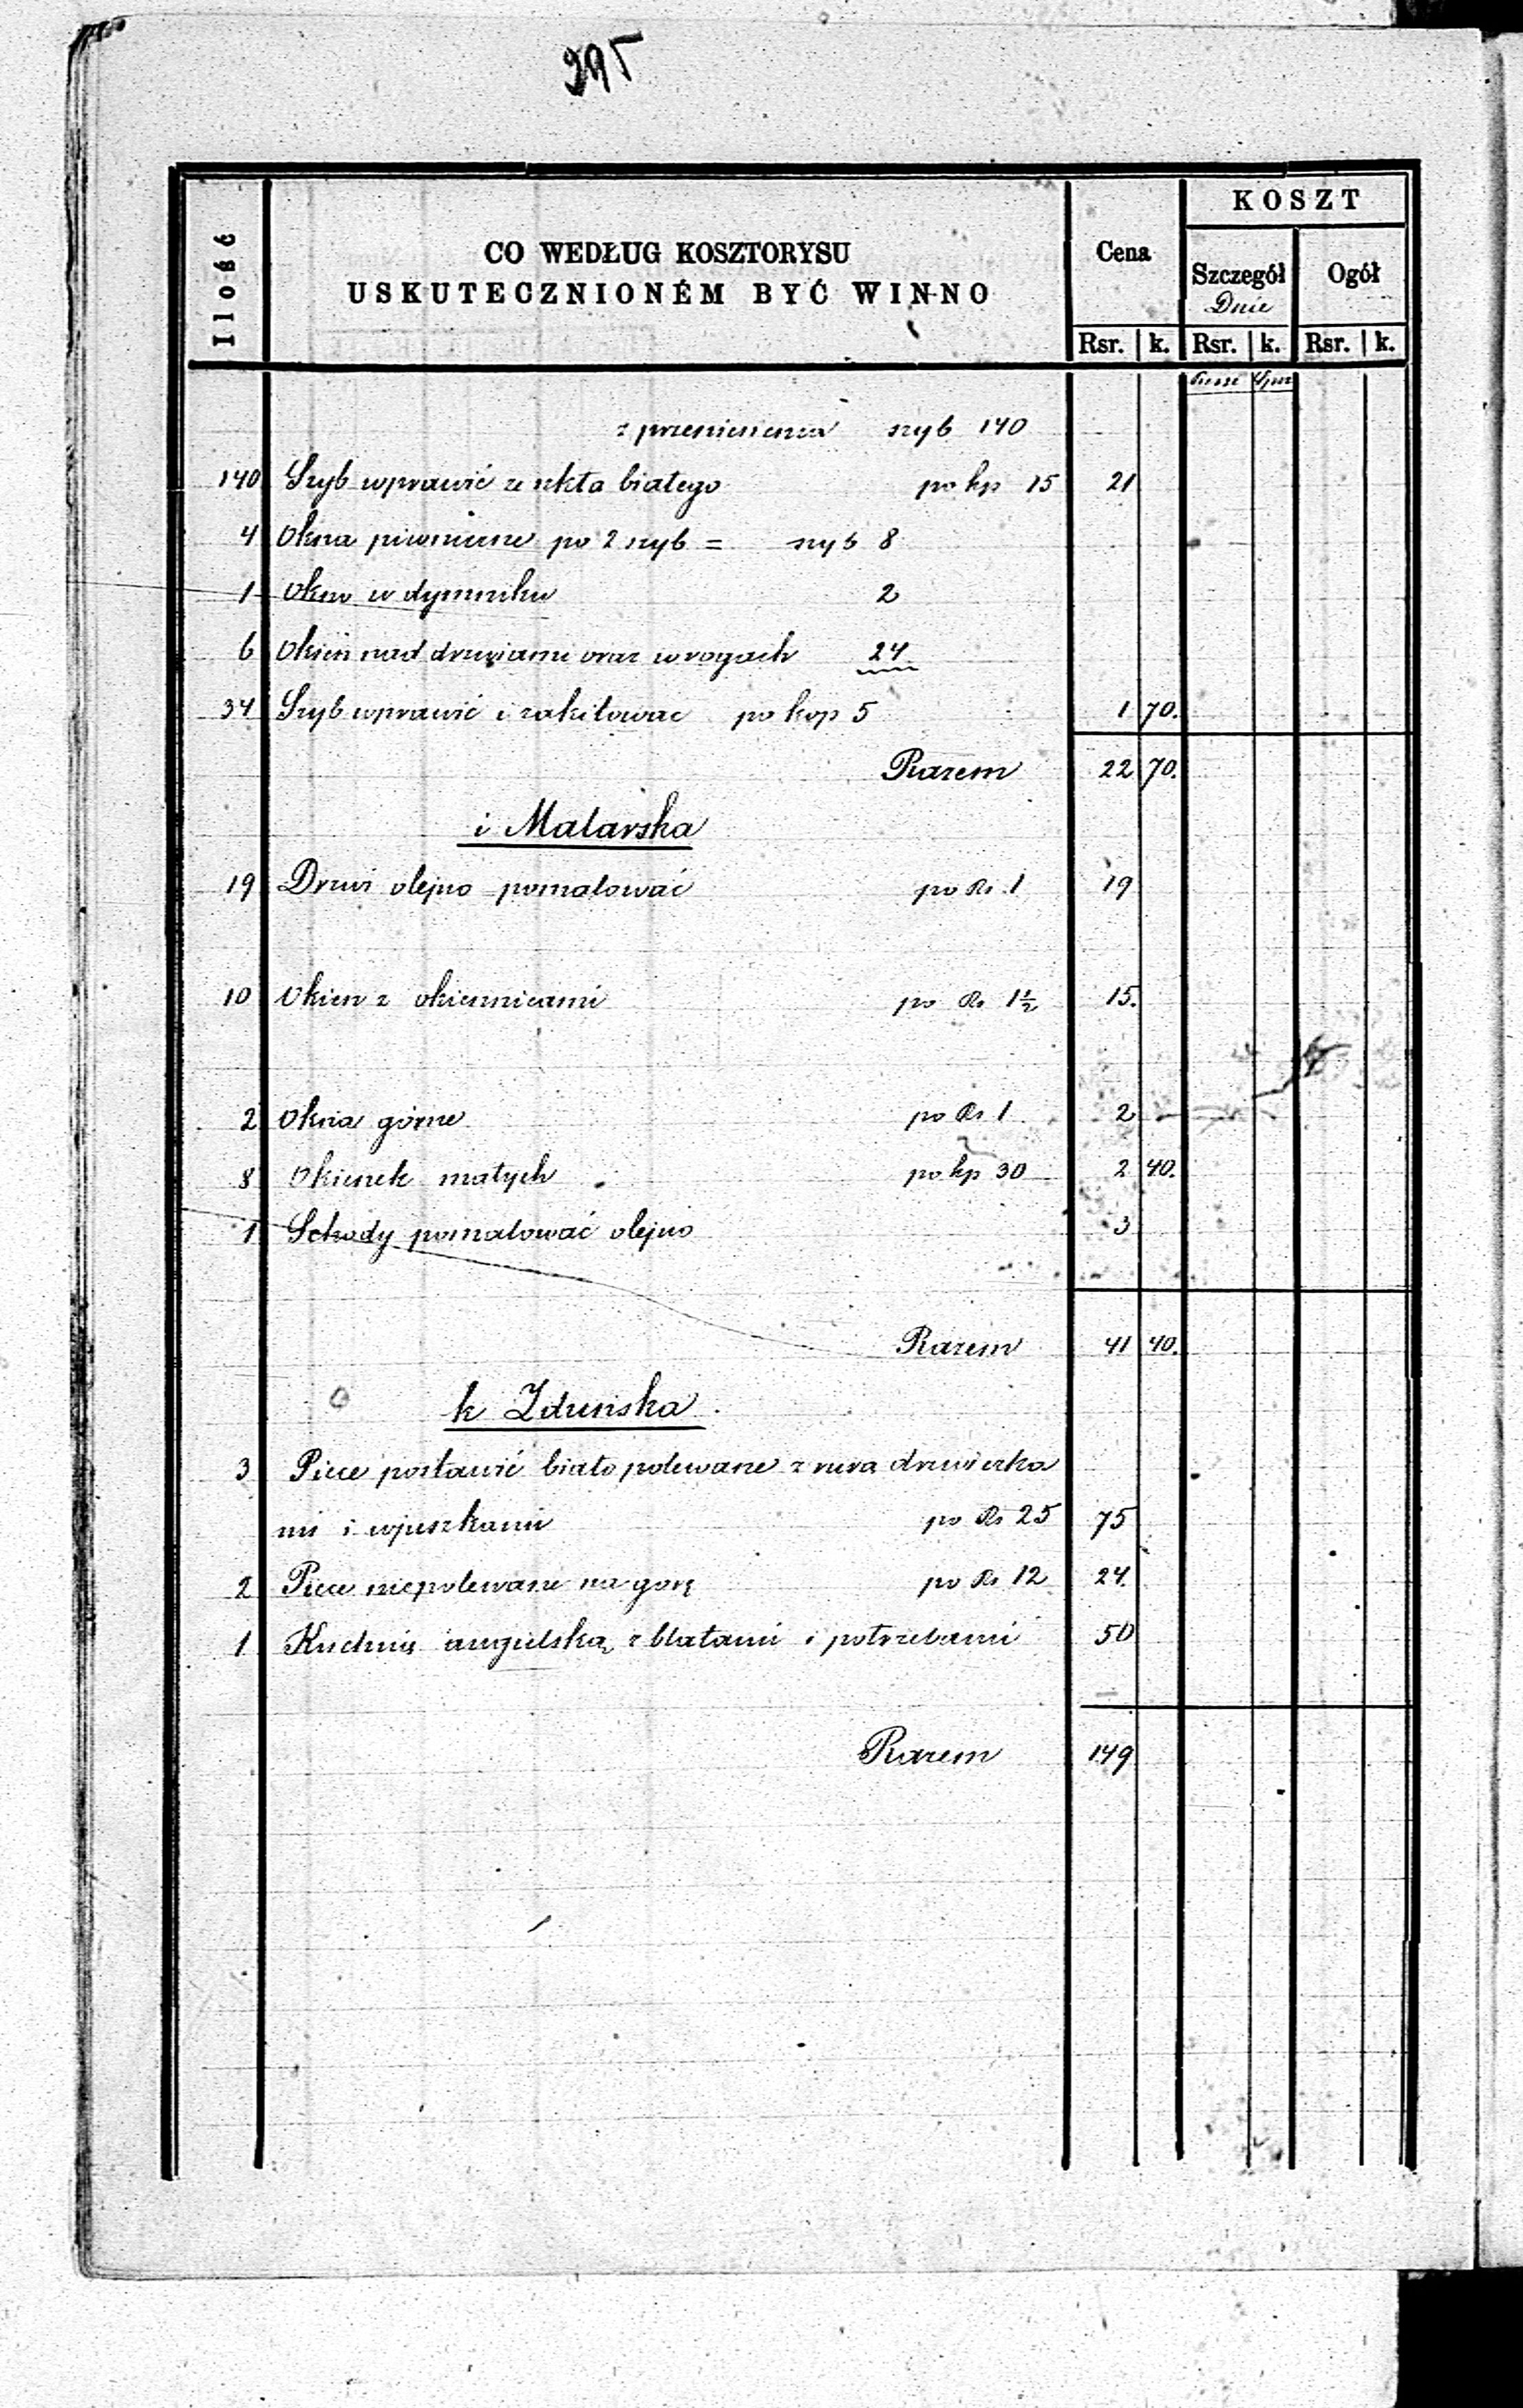 295
Ilość
CO WEDŁUG KOSZTORYSU
USKUTECZNIONÉM BYĆ WINNO
Cena
KOSZT
Szczegół
Dnie
Ogół
Rsr. k. Rsr. k. Rsr. k.
z przeniesienia szyb 140
140 Szyb wprawić ze szkła białego po kp 15 21
4 Okna piwniczne po 2 szyb = szyb 8
1 Okno w dymniku 2
6 Okien nad drzwiami oraz w rogach 24
34 Szyb wprawić i zakitować po kop 5 1 70.
Razem 22 70.
i Malarska
19 Drzwi olejno pomalować po Rs. 1 19
10 Okien z okiennicami po Rs 1½ 15.
2 Okna górne po Rs 1 2
8 Okienek małych po kp 30 2 40.
1 Schody pomalować olejno 3
Razem 41 40.
k Zduńska
3 Piece postawić biało polewane z rura drzwiczka
mi i wjuszkami po Rs 25 75
2 Piece niepolewane na górę po Rs 12 24.
1 Kuchnię angielską z blatami i potrzebami 50
Razem 149